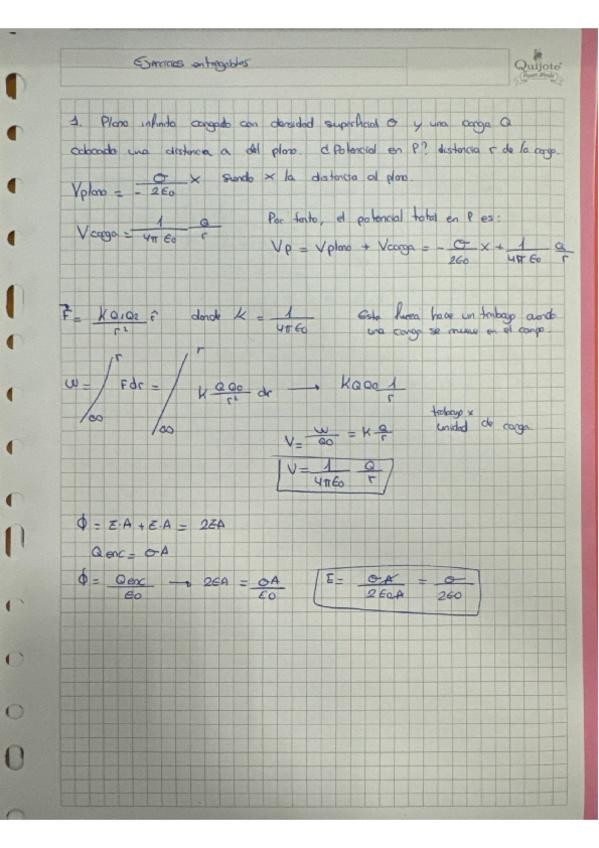 Ejercicios entregables
Quijote
1. Plano infinito cargado con densidad superficial σ y una carga Q
colocada una distancia a del plano. ¿Potencial en P? distancia r de la carga.
Vplano = - σ/2ε0 x siendo x la distancia al plano.
Vcarga = 1/4π ε0 Q/r
Por tanto, el potencial total en P es:
Vp = Vplano + Vcarga = - σ/2ε0 x + 1/4π ε0 Q/r
F⃗ = K Q1Q2/r² r̂ donde K = 1/4πε0
Esta fuerza hace un trabajo cuando
una carga se mueve en el campo.
W = ∫∞^r F dr = ∫∞^r K QQ0/r² dr → KQQ0 1/r
V = W/Q0 = K Q/r
trabajo x
unidad de carga
V = 1/4πε0 Q/r
ϕ = E·A + E·A = 2EA
Qenc = σA
ϕ = Qenc/ε0 → 2EA = σA/ε0
E = σA/2ε0A = σ/2ε0